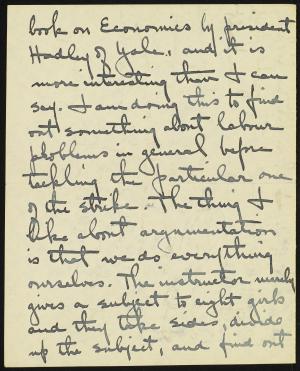 book on Economics by president
Hadley of Yale, and it is
more interesting than I can
say. I am doing this to find
out something about labour
problems in general before
tackling the particular one
of the strike. The thing I
like about argumentation
is that we do everything
ourselves. The instructor merely
gives a subject to eight girls
and they take sides, divide
up the subject, and find out